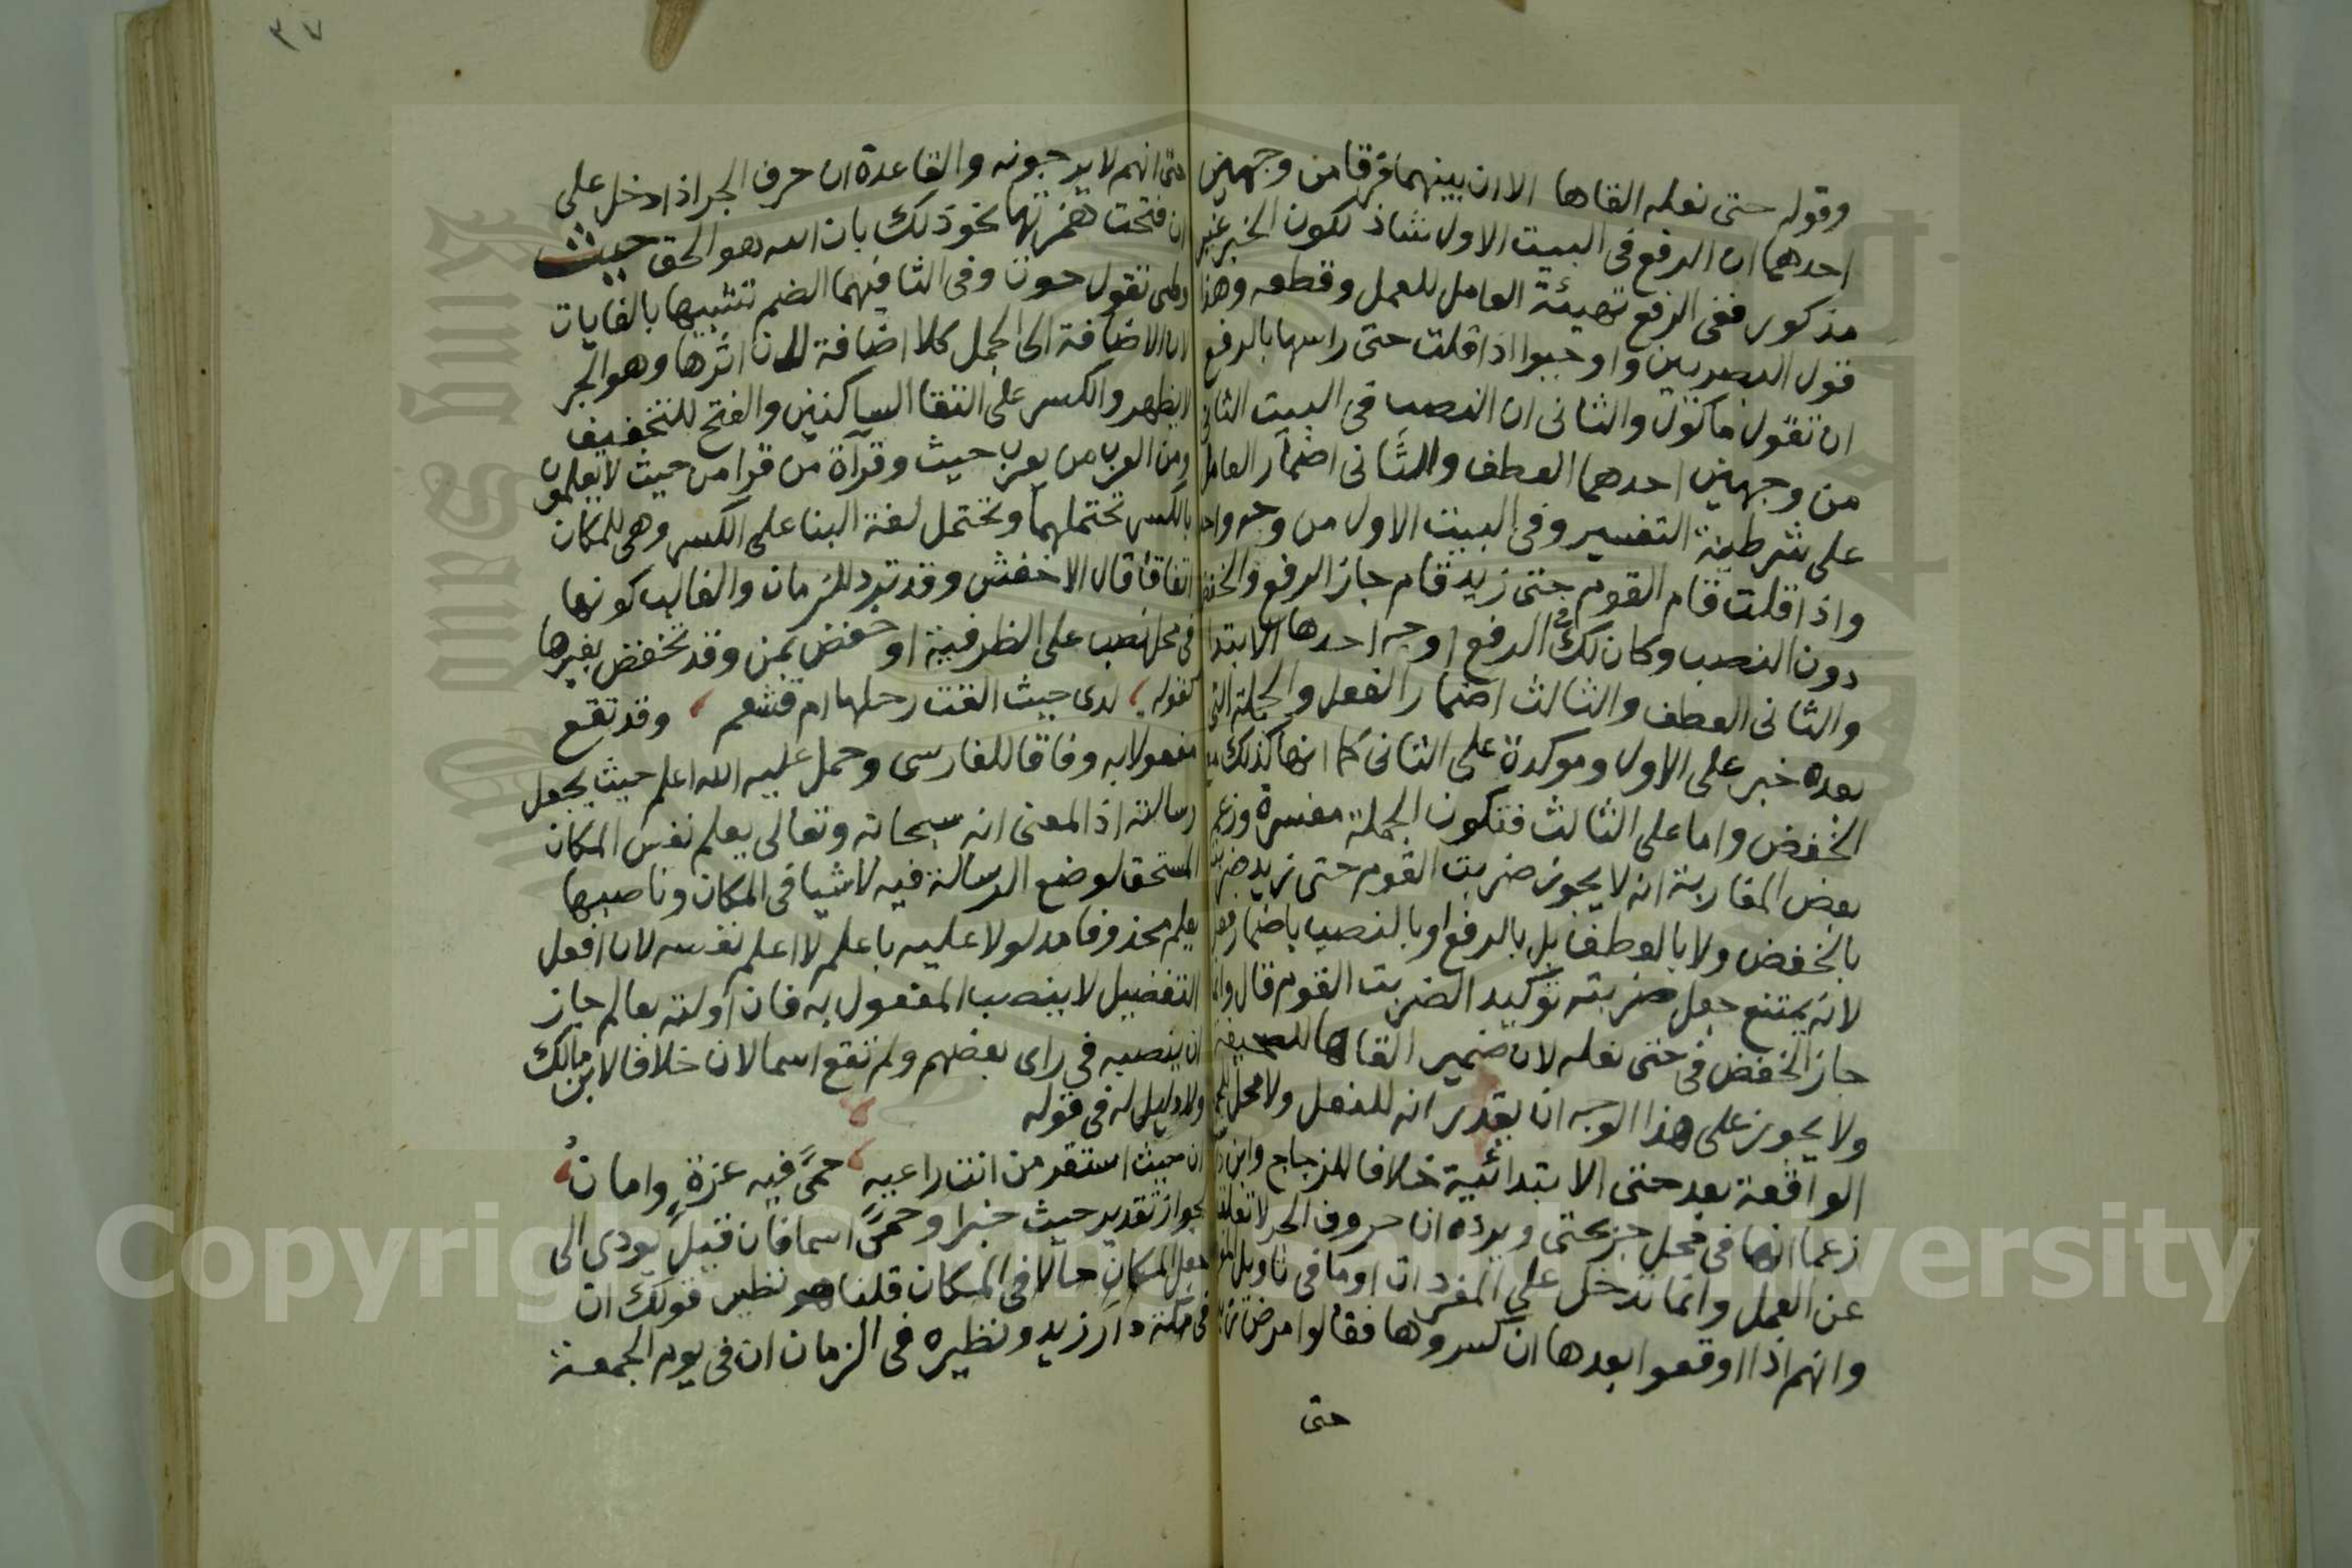 وقوله حتى نعله القاها الا ان بينهما فرقا من وجهين
احدهما ان الرفع فى البيت الاول شاذ لكون الخبر غير
مذكور ففى الرفع تهيئة العامل للعمل وقطعه وهذا
قول البصريين واوجبوا اذا قلت حتى راسها بالرفع
ان تقول ماكول والثانى ان النصب فى البيت الثانى
من وجهين احدهما العطف والثانى اضمار العامل
على شرطية التفسير وفى البيت الاول من وجه واحد
واذا قلت قام القوم حتى زيد قام جاز الرفع والخفض
دون النصب وكان لك فى الرفع اوجه احدها الابتدا
والثانى العطف والثالث اضمار الفعل والجملة التى
بعده خبر على الاول وموكدة على الثانى كما انها كذلك مع
الخفض واما على الثالث فتكون الجملة مفسرة وزعم
بعض المغاربة انه لا يجوز ضربت القوم حتى زيد ضربته
بالخفض ولا بالعطف بل بالرفع او بالنصب باضمار فعل
لانه يمتنع جعل ضربته توكيدا لضربت القوم قال وانما
جاز الخفض فى حتى نعله لان ضمير القاها للصحيفة
ولا يجوز على هذا الوجه ان يقدر انه للنعل ولا محل للجملة
الواقعة بعد حتى الابتدائية خلافا للزجاج وابن
زعما انها فى محل جر بحتى ويرده ان حروف الجر لا تعلق
عن العمل وانما تدخل على المفردات او ما فى تاويل
وانهم اذا اوقعوا بعدها ان كسروها فقالوا مرض زيد
حتى
٣٧
حتى انهم لا يرجونه والقاعدة ان حرف الجر اذا دخل على
ان فتحت همزتها نحو ذلك بان الله هو الحق حيث
وطى تقول حوث وفى الثا فيهما الضم تشبيها بالغايات
لان الاضافة الى الجمل كلا اضافة لان اثرها وهو الجر
لا يظهر والكسر على التقا الساكنين والفتح للتخفيف
ومن العرب من يعرب حيث وقرآة من قرا من حيث لا يعلمون
بالكسر تحتملهما وتحتمل لغة البنا على الكسر وهى للمكان
اتفاقا قال الاخفش وقد ترد للزمان والغالب كونها
فى محل نصب على الظرفية او خفض بمن وقد تخفض بغيرها
كقوله لدى حيث القت رحلها ام قشعم وقد تقع
مفعولا به وفاقا للفارسى وحمل عليه الله اعلم حيث يجعل
رسالته اذ المعنى انه سبحانه وتعالى يعلم نفس المكان
المستحق لوضع الرسالة فيه لا شيا فى المكان وناصبها
يعلم محذوفا مدلولا عليه باعلم لا اعلم نفسه لان افعل
التفضيل لا ينصب المفعول به فان اولته بعالم جاز
ان ينصبه فى راى بعضهم ولم تقع اسما لان خلافا لابن مالك
ولا دليل له فى قوله
ان حيث استقر من انت راعيه حمًى فيه عزة وامان
لجواز تقدير حيث خبرا وحمًى اسما فان قيل يودى الى
جعل المكان حالا فى المكان قلنا هو نظير قولك ان
فى مكة دار زيد ونظيره فى الزمان ان فى يوم الجمعة
Copyright © King Saud University